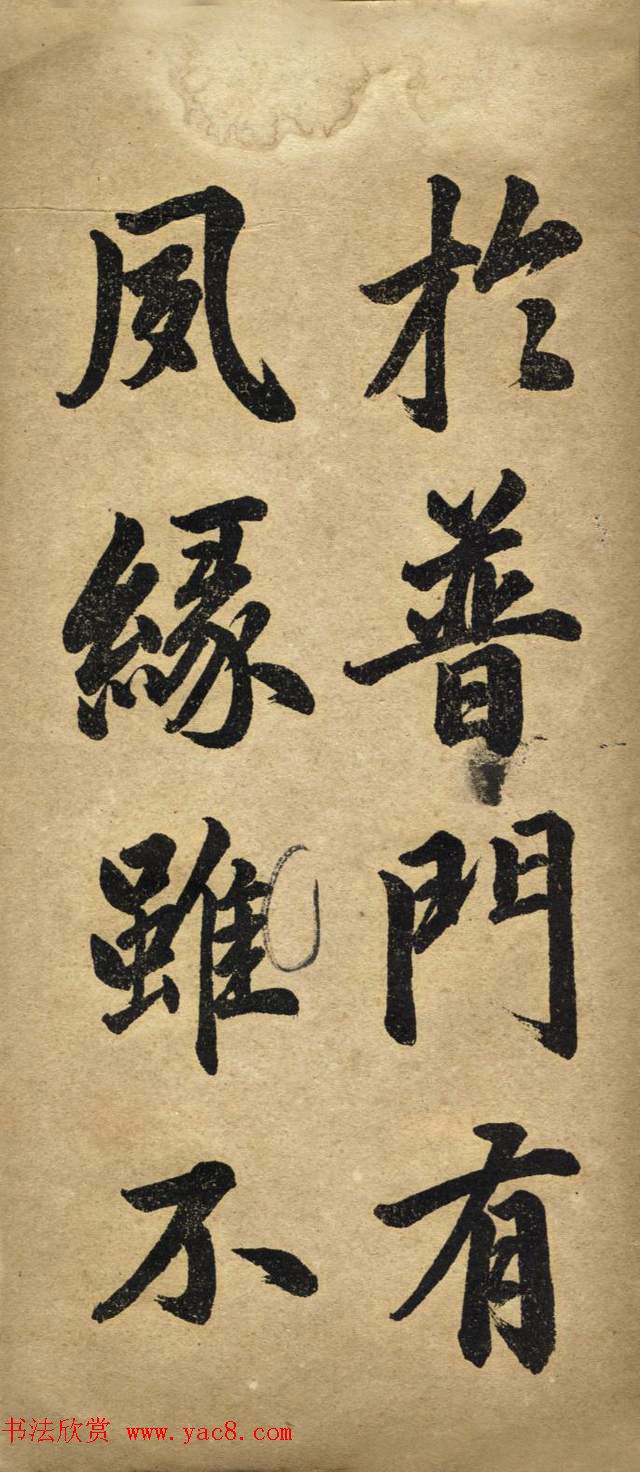 於普門有
夙緣雖不
书法欣赏 www.yac8.com